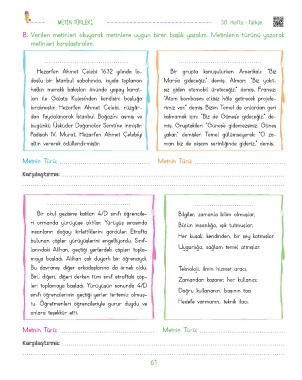 METİN TÜRLERİ
30. Hafta - Türkçe
B. Verilen metinleri okuyarak metinlere uygun birer başlık yazalım. Metinlerin türünü yazarak
metinleri karşılaştıralım.
Hezarfen Ahmet Çelebi 1632 yılında lo-
doslu bir İstanbul sabahında, kıyıda toplanan
halkın meraklı bakışları önünde yapay kanat-
ları ile Galata Kulesi'nden kendisini boşluğa
bırakmıştır. Hezarfen Ahmet Çelebi, rüzgâr-
dan faydalanarak İstanbul Boğazını aşmış ve
bugünkü Üsküdar Doğancılar Semtine inmiştir.
Padişah IV. Murat, Hezarfen Ahmet Çelebiyi
altın vererek ödüllendirmiştir.
Bir grupta konuşulurken Amerikalı: "Biz
Marsa gideceğiz" demiş. Alman: "Biz yakıt-
sız giden otomobil üreteceğiz" demiş. Fransız
"Atom bombasını etkisiz hâle getirecek projele-
rimiz var" demiş. Bizim Temel de onlardan geri
kalmamak için: "Biz de Güneşe gideceğiz" de-
miş. Gruptakiler: "Güneşe gidemezsiniz. Güneş
yakar" demişler. Temel gülümseyerek: "O za-
man biz de akşam serinliğinde gideriz" demiş.
Metnin Türü:
Metnin Türü:
Karşılaştırma:
Bir okul gezisine katılan 4/D sınıfı öğrencile-
ri ormanda yürüyüşe çıktılar. Yürüyüş sırasında
insanların doğayı kirlettiklerini gördüler. Etrafta
bulunan çöpler yürüyüşlerini engelliyordu. Sınıf-
larındaki Alihan, geçtiği yerlerdeki çöpleri topla-
maya başladı. Alihan çok duyarlı bir öğrenciydi.
Bu davranışı diğer arkadaşlarına da örnek oldu.
Biri, diğeri, diğeri derken tüm sınıf etraftaki çöp-
leri toplamaya başladı. Yürüyüşün sonunda 4/D
sınıfı öğrencilerinin geçtiği yerler tertemiz olmuş-
tu. Öğretmenleri öğrencileriyle gurur duydu ve
onlara teşekkür etti.
Bilgiler, zamanla bilim olmuşlar,
Bütün insanlığa, ışık tutmuşlar,
Her kuşak, kendinden, bir şey katmışlar
Uygarlığa, sağlam temel atmışlar.
Teknoloji, ilmin hizmet aracı,
Zamandan kazanır, her kullanıcı,
Doğru kullananın, başının tacı
Hedefe varmanın, teknik ilacı.
Metnin Türü:
Metnin Türü:
Karşılaştırma:
61